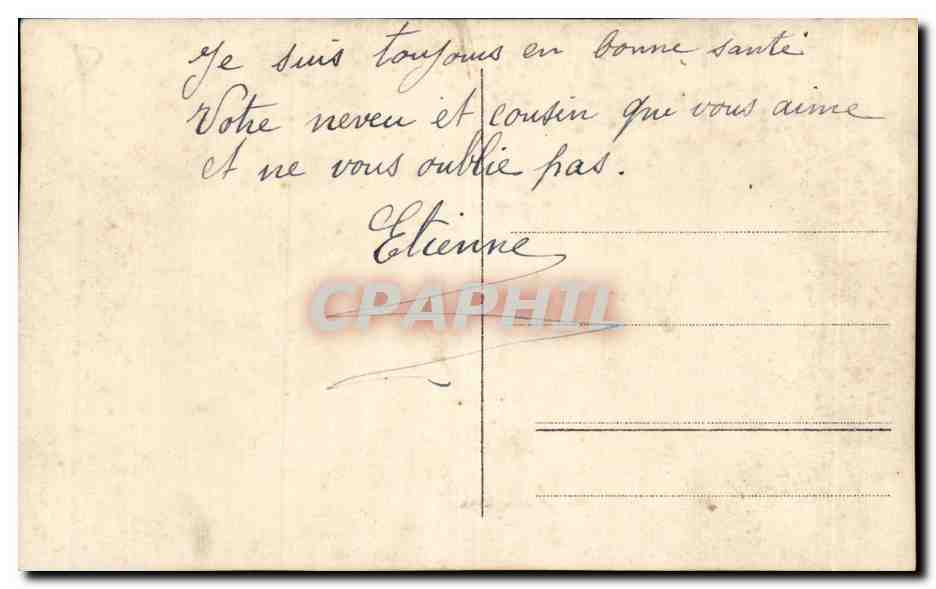 Je suis toujours en bonne santé
Votre neveu et cousin qui vous aime
et ne vous oublie pas.
Etienne
CPAPHIL